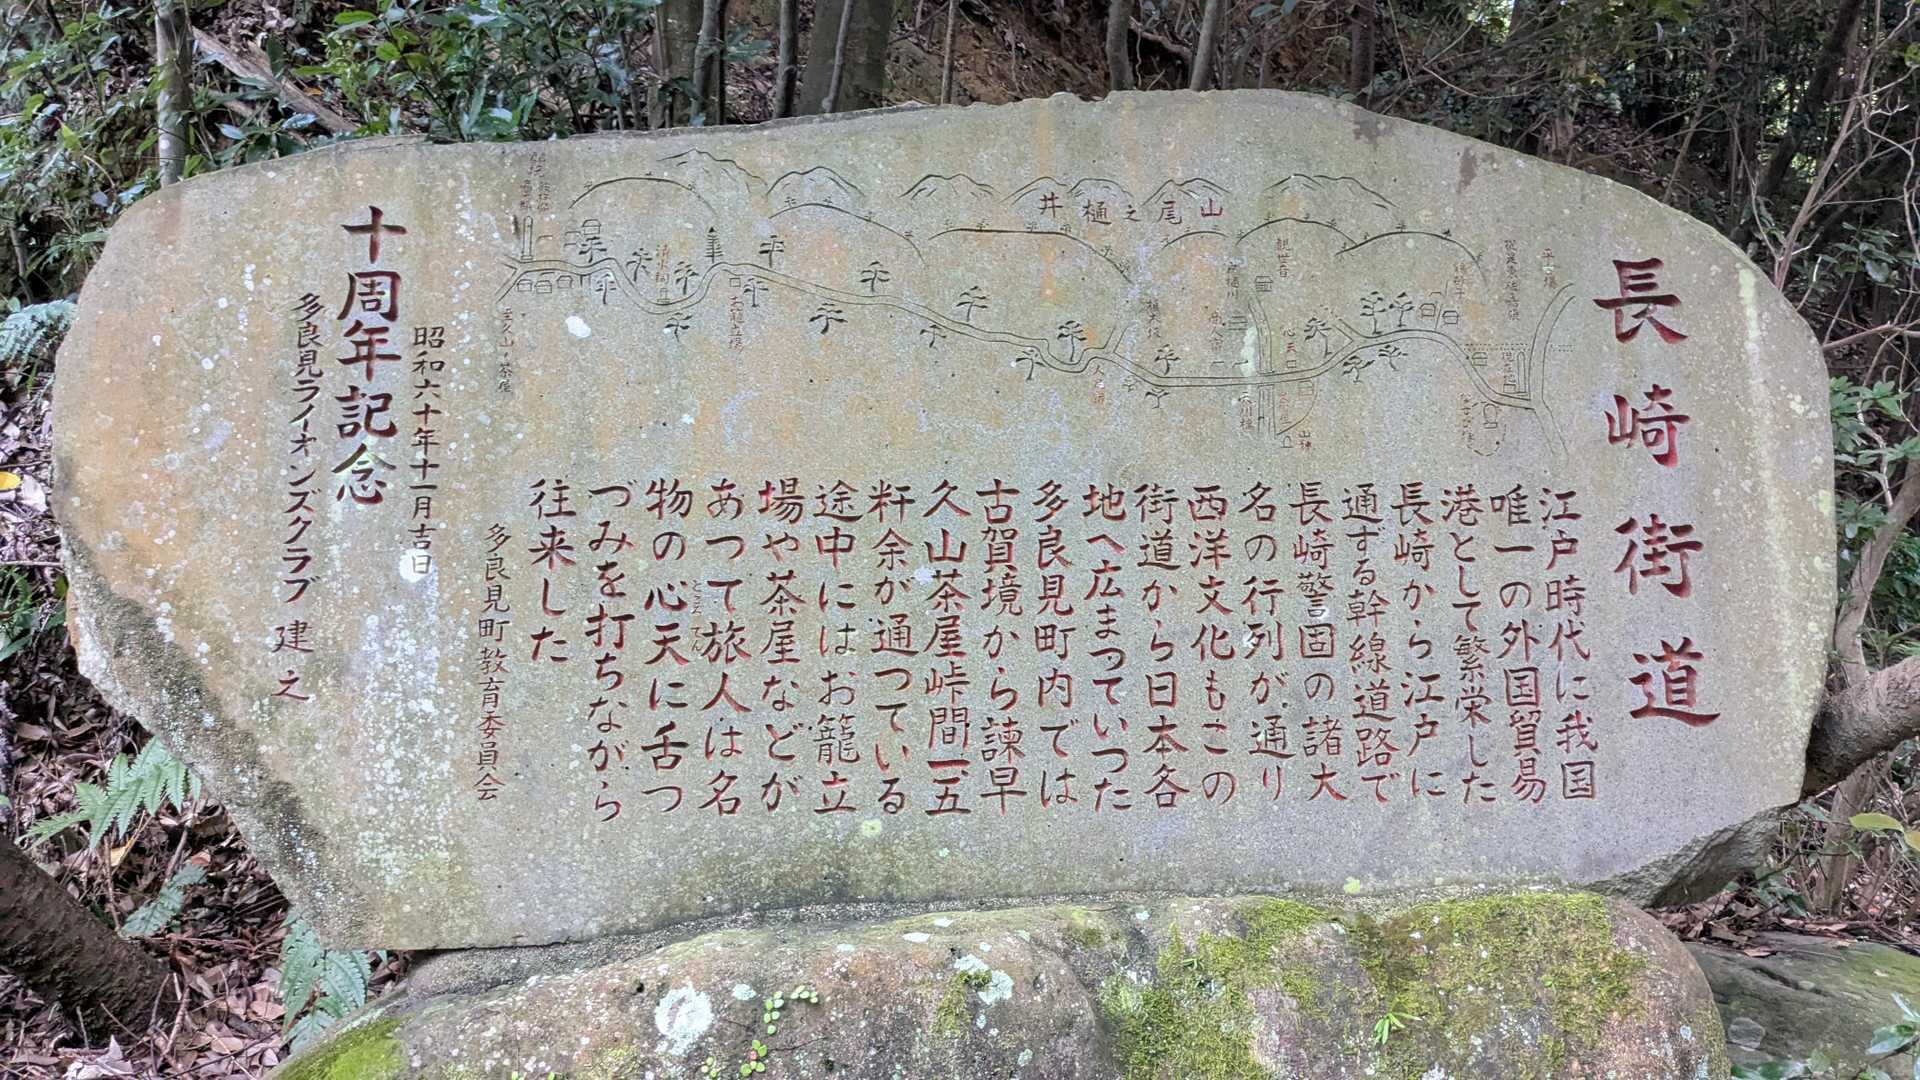 長崎街道
井樋之尾山
江戸時代に我国
唯一の外国貿易
港として繁栄した
長崎から江戸に
通ずる幹線道路で
長崎警固の諸大
名の行列が通り
西洋文化もこの
街道から日本各
地へ広まっていつた
多良見町内では
古賀境から諫早
久山茶屋峠間一、五
粁余が通つている
途中にはお籠立
場や茶屋などが
あつて旅人は名
物の心天に舌つ
ところてん
づみを打ちながら
往来した
多良見町教育委員会
昭和六十年十一月吉日
十周年記念
多良見ライオンズクラブ 建之